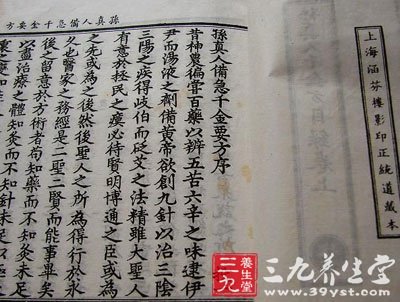 上海涵芬樓影印正統道藏本
孫真人備急千金要方
孫真人備急千金要方序
昔神農徧嘗百藥以辨五苦六辛之味逮伊
尹而湯液之劑備黃帝欲創九針以治三陰
三陽之疾得岐伯而砭艾之法精雖大聖人
有意於拯民之瘼必待賢明博通之臣或為
之先或為之後然後聖人之所為得行於永
久也醫家之務經是二聖二賢而能事畢矣
後之留意於方術者苟知藥而不知灸未足
以盡治療之體知灸而不知針未足以極
三九
養生堂
三九养生堂
www.39yst.com